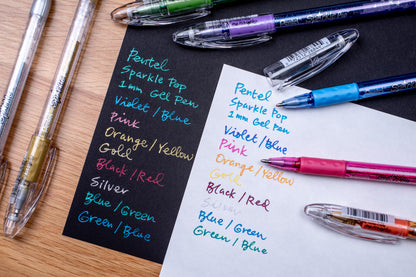 Pentel
Sparkle Pop
1mm Gel Pen
Violet/Blue
Pink
Orange/Yellow
Gold
Black/Red
Silver
Blue/Green
Green/Blue
Pentel
Sparkle Pop
1mm Gel Pen
Violet/Blue
Pink
Orange/Yellow
Gold
Black/Red
Silver
Blue/Green
Green/Blue